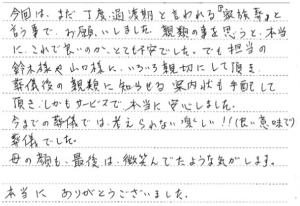 今回は、まだ丁度過渡期と言われる『家族葬』と
言う事で、お願いしました。親類の事を思うと、本当
に、これで良いのか、とても不安でした。でも担当の
鈴木様や山口様に、いろいろ親切にして頂き、
葬儀後の親類に知らせる案内状も手配して
頂き、しかもサービスで、本当に安心しました。
今までの葬儀では、考えられない楽しい!!(良い意味で)
葬儀でした。
母の顔も、最後は、微笑んでたような気がします。
本当に ありがとうございました。